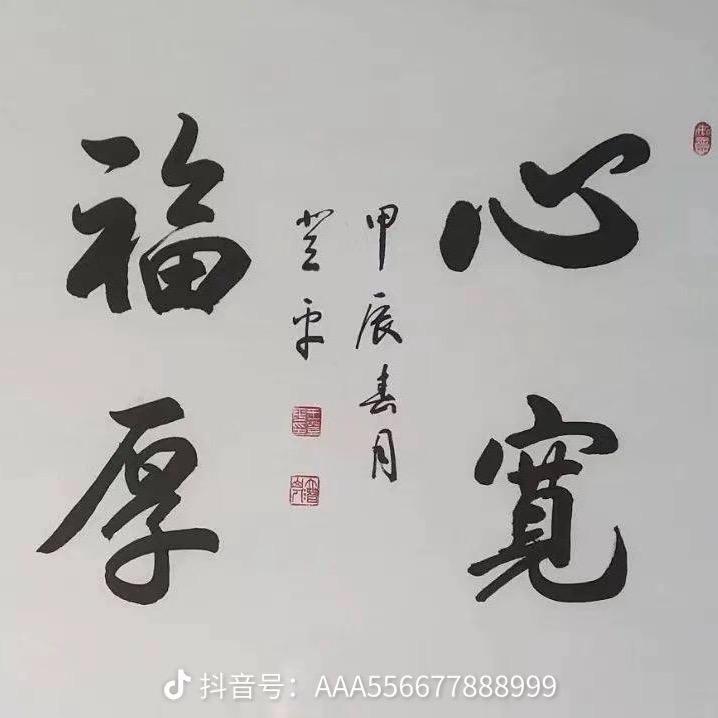 心寬
福厚
甲辰春月
登平
抖音号：AAA556677888999